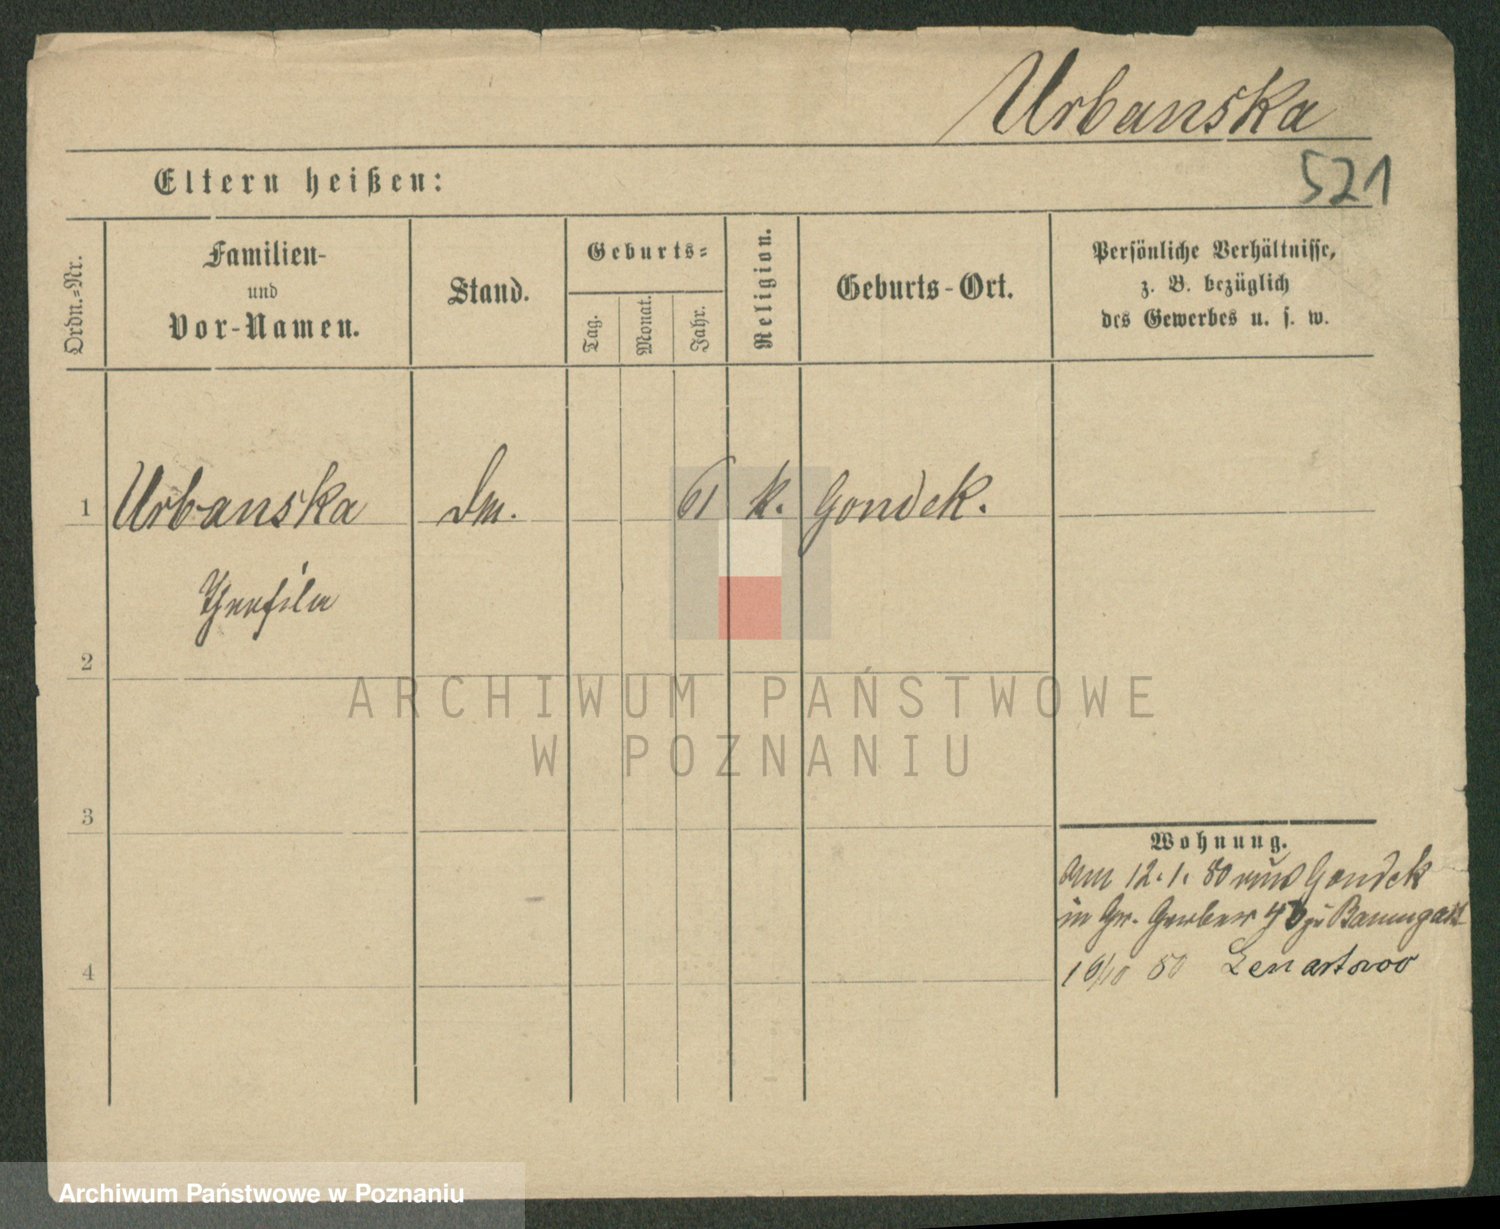 Urbanska
521
Eltern heißen:
Ordn.-Nr.
Familien-
und
Vor-Namen.
Stand.
Geburts-
Tag.
Monat.
Jahr.
Religion.
Geburts-Ort.
Persönliche Verhältnisse,
z. B. bezüglich
des Gewerbes u. s. w.
1 Urbanska Dm. 61 k. Gondek.
Theofila
2
ARCHIWUM PAŃSTWOWE
W POZNANIU
3
Wohnung.
Am 12.1.80 aus Gondek
in Gr. Gerber 40 zu Baumgart
4
16/10 80 Lenartowo
Archiwum Państwowe w Poznaniu